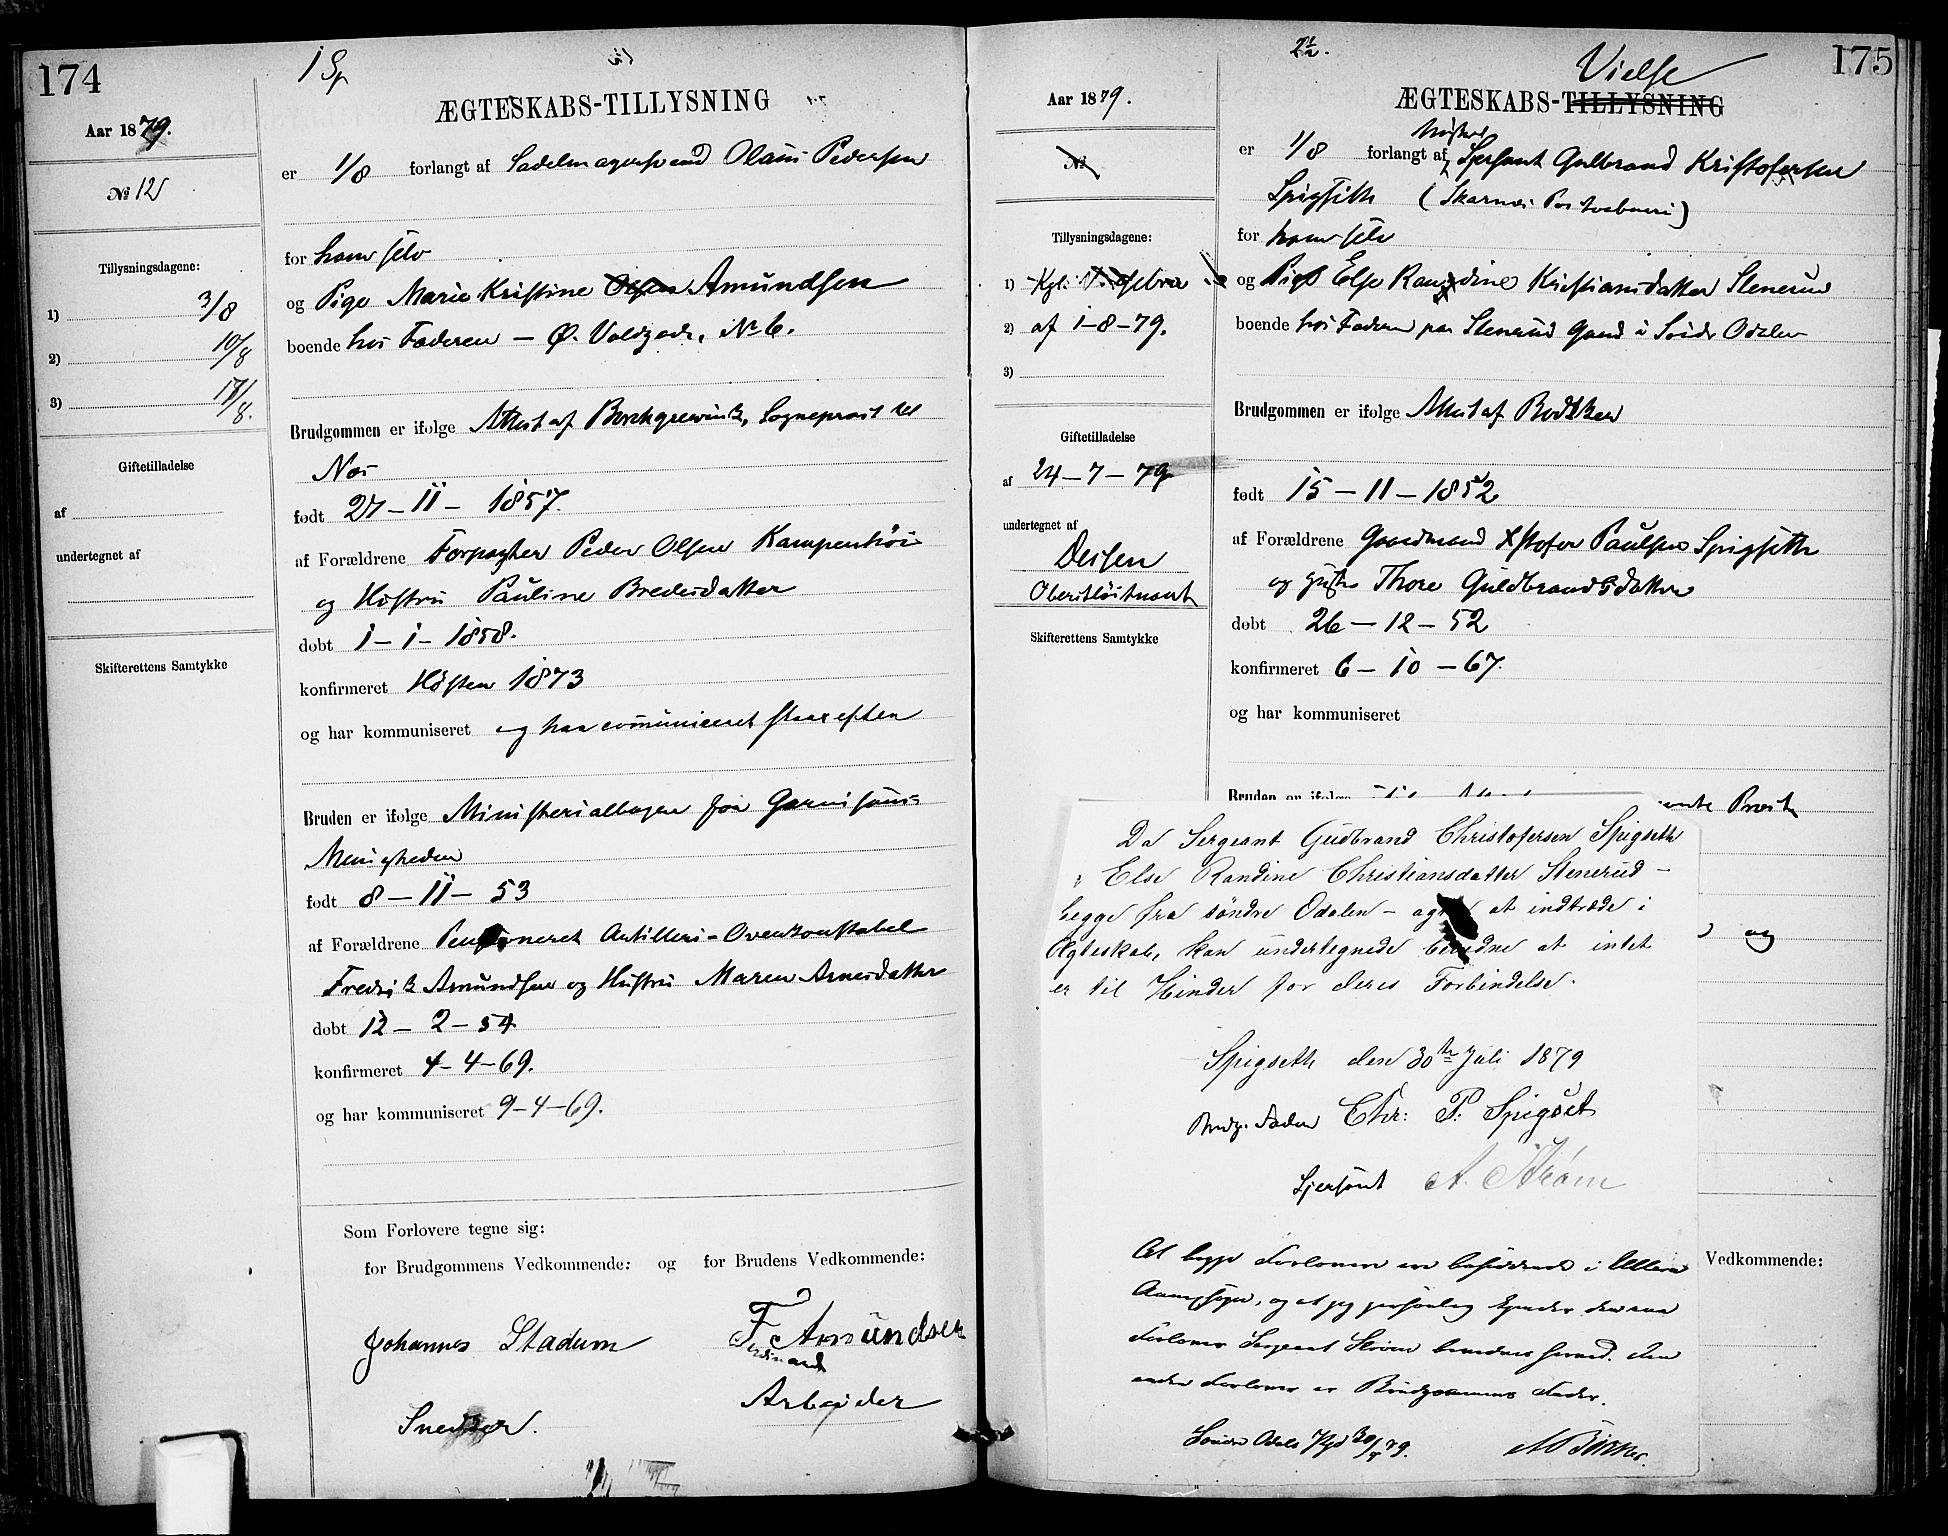 174
1 Sp
ÆGTESKABS-TILLYSNING
Aar 1879.
№ 12
er 1/8 forlangt af Sadelmagersvend Olaus Pedersen
Tillysningsdagene:
1) 3/8
2) 10/8
3) 17/8.
Giftetilladelse
af
undertegnet af
Skifterettens Samtykke
for ham selv
og Pige Marie Kristine Amundsen
boende hos Faderen — Ø. Voldgade, No 6.
Brudgommen er ifølge Attest af Borchgrevink, Sogneprest til
Næs
født 27 — 11 — 1857.
af Forældrene Forpagter Peder Olsen Kampenhøi
og Hustru Pauline Bredesdatter
døbt 1 — 1 — 1858.
konfirmeret Høsten 1873
og har kommuniseret og har communiceret efter
Bruden er ifølge Ministerialbogen for Garnisons-
Menigheden
født 8 — 11 — 53
af Forældrene Pensioneret Artilleri-Overkonstabel
Fredrik Amundsen og Hustru Maren Arnesdatter
døbt 12 — 2 — 54
konfirmeret 4 - 4 - 69.
og har kommuniseret 9 - 4 - 69.
Som Forlovere tegne sig:
for Brudgommens Vedkommende: og for Brudens Vedkommende:
Johannes Stadum
F. Amundsen
Ferdinand
Snedker.
Arbeider
175
2½.
Vielse
ÆGTESKABS-TILLYSNING
Aar 1879.
№
er 1/8 forlangt af Sersjant Gulbrand Kristofersen
Spigseth (Skarnæs Postaabneri)
Tillysningsdagene:
1) Kgl.
2) af 1-8-79.
3)
Giftetilladelse
af 24 — 7 — 79
undertegnet af
Oberstløitnant
Skifterettens Samtykke
for ham selv
og Pige Else Randine Kristiansdatter Stenerud
boende hos Faderen paa Stenerud Gaard i Søndr Odalen
Brudgommen er ifølge Attest af
født 15 — 11 — 1852
af Forældrene Gaardmand Xstofer Paulsen Spigseth
og Thore Guldbrandsdatter
døbt 26 — 12 — 52
konfirmeret 6 — 10 — 67.
og har kommuniseret
Bruden er ifølge
Præst
og
Da Sergeant Gudbrand Christofersen Spigseth
Else Randine Christiansdatter Stenerud -
begge fra søndre Odalen - agter at indtræde i
Ægteskab, kan undertegnede bevidne at intet
er til Hinder for deres Forbindelse.
Spigseth den 30te Juli 1879
Brudg. Fader Chr: P: Spigset
Sjersant A. Strøm
At begge Forlovere ere i
og at jeg personlig kjender den ene
Forlover Sergeant Strøm bevidnes herved. Den
anden Forlover er Brudgommens Fader.
Søndre Odals 30/7 79.
Vedkommende: